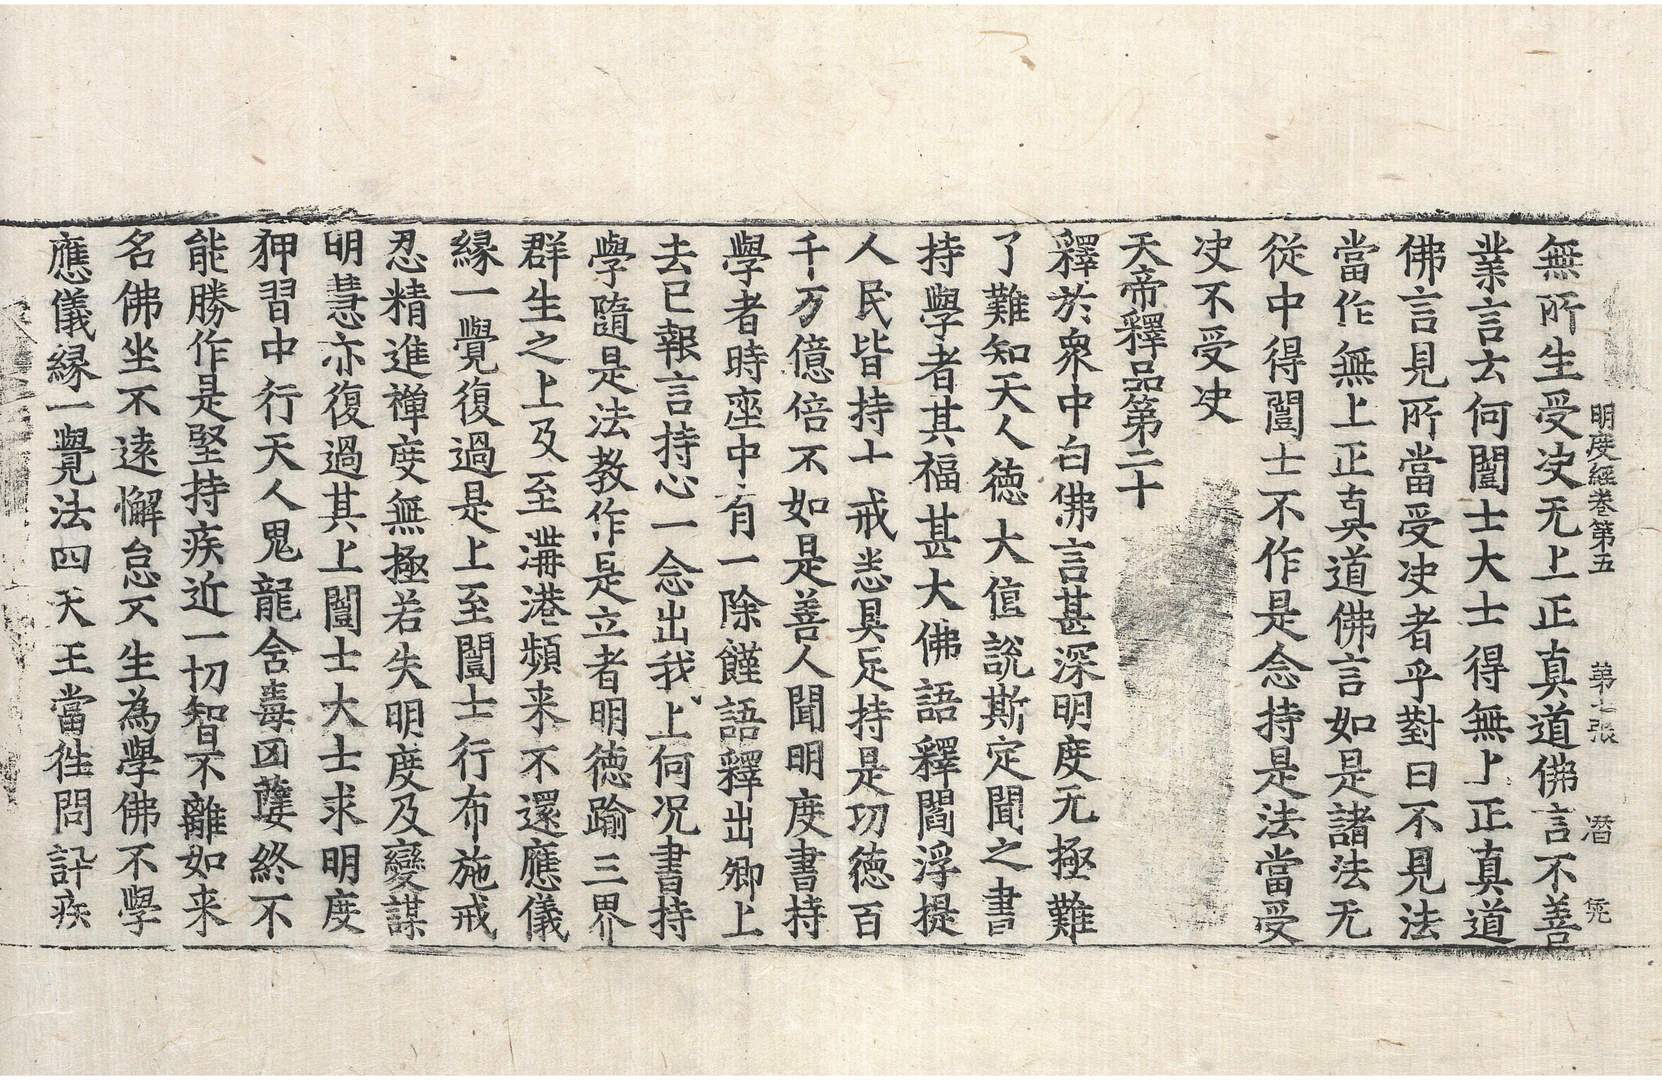 明度經卷第五　第七張　㬱　㐬
無所生受决无上正真道佛言不善
業言云何闓士大士得無上正真道
佛言見所當受决者乎對曰不見法
當作無上正真道佛言如是諸法无
從中得闓士不作是念持是法當受
决不受决
天帝釋品第二十
釋於衆中白佛言甚深明度无極難
了難知天人德大值說斯定聞之書
持學者其福甚大佛語釋閻浮提
人民皆持十戒悉具足持是功德百
千万億倍不如是善人聞明度書持
學者時座中有一除饉語釋出卿上
去已報言持心一念出我上何况書持
學隨是法教作是立者明德踰三界
群生之上及至溝港頻来不還應儀
緣一覺復過是上至闓士行布施戒
忍精進禅度無極若失明度及變謀
明慧亦復過其上闓士大士求明度
狎習中行天人鬼龍含毒凶孽終不
能勝作是堅持疾近一切智不離如来
名佛坐不遠懈怠不生為學佛不學
應儀緣一覺法四天王當徃問訊疾